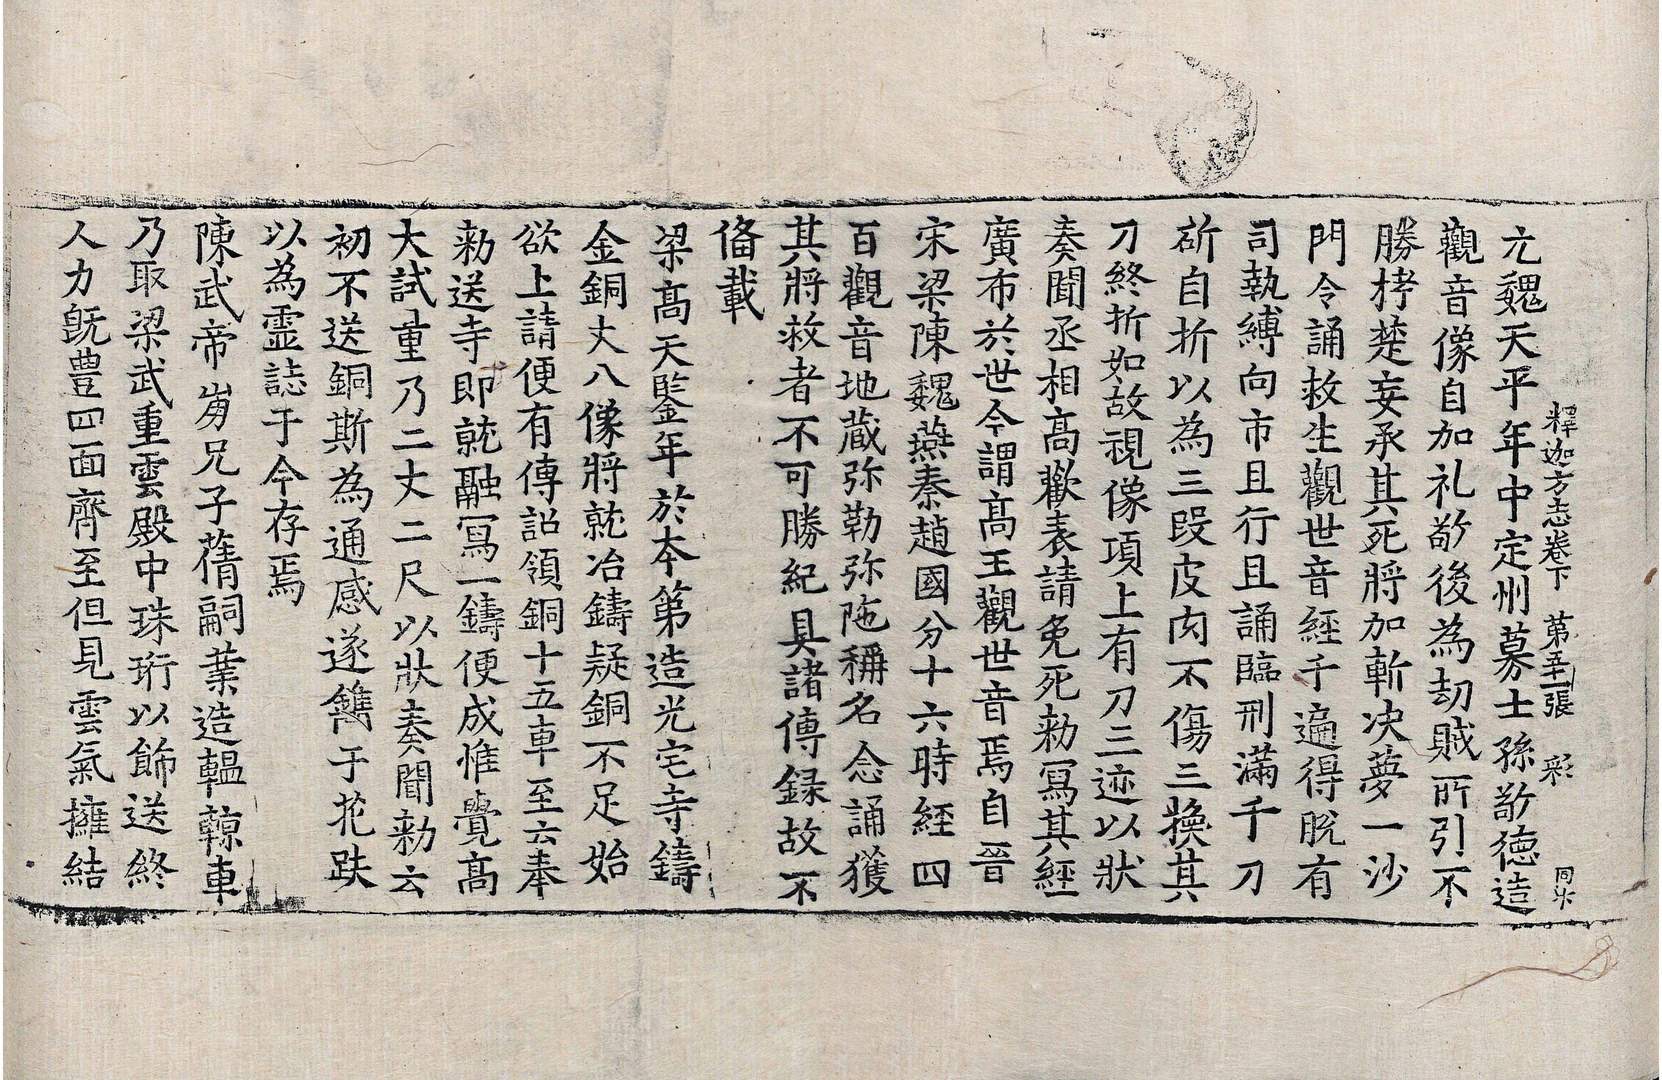 釋迦方志卷下　第五十一張　彩　同朱
元魏天平年中定州募士孫敬德造
觀音像自加礼敬後為劫賊所引不
勝栲楚妄承其死將加斬決夢一沙
門令誦救生觀世音經千遍得脫有
司執縛向市且行且誦臨刑滿千刀
斫自折以為三段皮肉不傷三換其
刀終折如故視像項上有刀三迹以狀
奏聞丞相高歡表請免死勑寫其經
廣布於世今謂高王觀世音焉自晉
宋梁陳魏燕秦趙國分十六時經四
百觀音地蔵弥勒弥陁稱名念誦獲
其將救者不可勝紀具諸傳録故不
俻載
梁高天監年於本第造光宅寺鑄
金銅丈八像將就冶鑄疑銅不足始
欲上請便有傳詔領銅十五車至云奉
勑送寺即就融寫一鑄便成惟覺高
大試量乃二丈二尺以狀奏聞勑云
初不送銅斯為通感遂鐫于花趺
以為靈誌于今存焉
陳武帝崩兄子蒨嗣業造轀輬車
乃取梁武重雲殿中珠珩以飾送終
人力旣豊四面齊至但見雲氣擁結